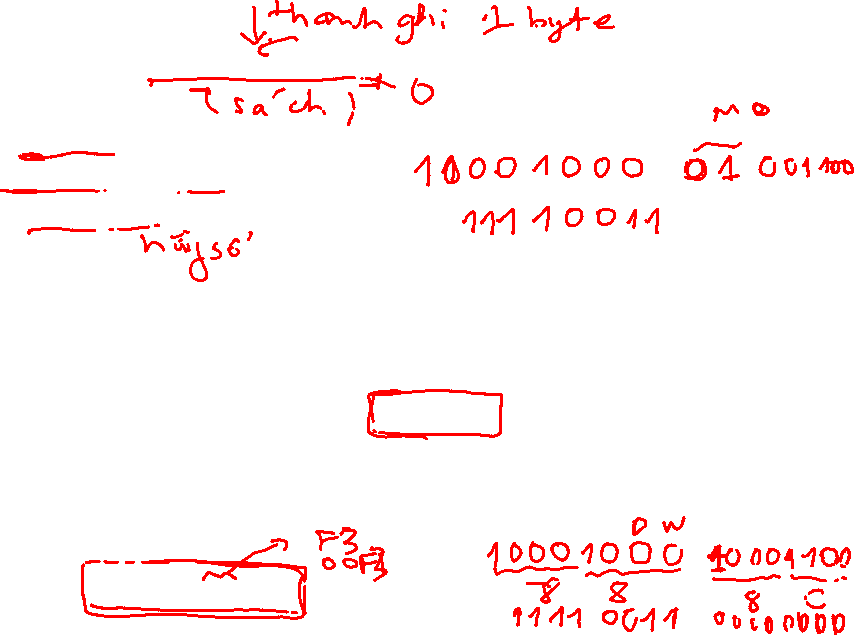 thanh ghi 1 byte
(sách) 0
MO
10001000 01 001100
11110011
hằng số
F3
00F3
D W
10001000 10001100
8 8 8 C
11110011 00000000